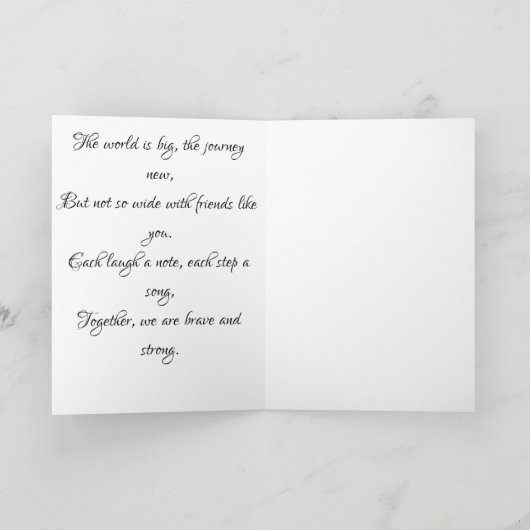 The world is big, the journey
new,
But not so wide with friends like
you.
Each laugh a note, each step a
song,
Together, we are brave and
strong.